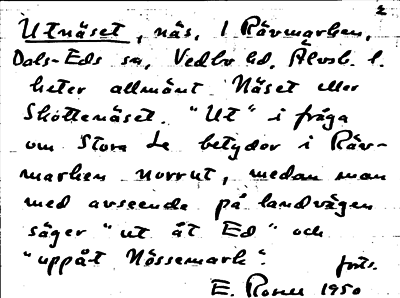 2
Utnäset, näs, i Rävmarken,
Dals-Eds sn, Vedbo hd, Älvsb. l.
heter allmänt Näset eller
Skottenäset. "Ut" i fråga
om Stora Le betyder i Räv-
marken norrut, medan man
med avseende på landvägen
säger "ut åt Ed" och
"uppåt Nössemark".
forts.
E. Rosell 1950